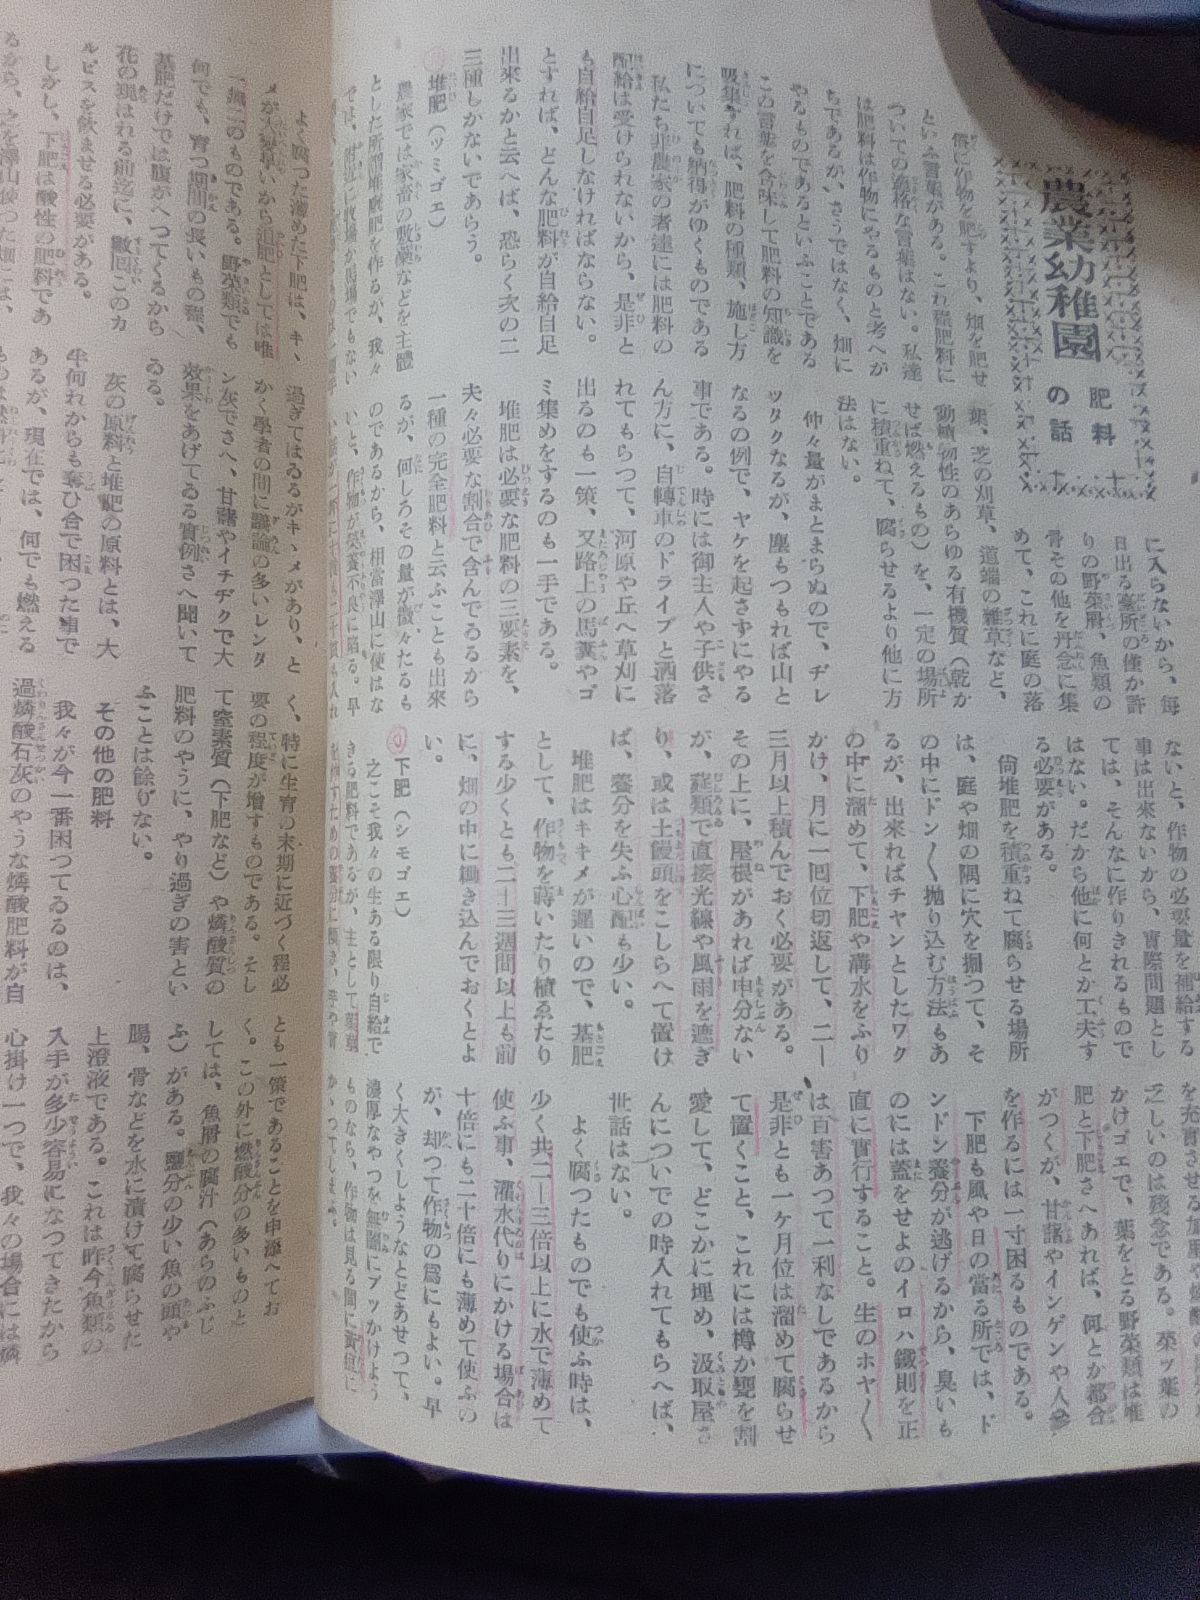 農業幼稚園
肥料
の話
に作物を肥すより、畑を肥せ
といふ言葉がある。これ程肥料に
ついての適格な言葉はない。私達
は肥料は作物にやるものと考へが
ちであるが、さうではなく、畑に
やるものであるといふことである
この言葉を含味して肥料の知識を
吸集すれば、肥料の種類、施し方
についても納得がゆくものである
私たち非農家の者達には肥料の
配給は受けられないから、是非と
も自給自足しなければならない。
とすれば、どんな肥料が自給自足
出來るかと云へば、恐らく次の二
三種しかないであらう。
堆肥(ツミゴエ)
農家では家畜の敷藁などを主體
とした所謂堆廐肥を作るが、我々
では、附近に牧場か馬場でもない
に入らないから、毎
日出る臺所の僅か許
りの野菜屑、魚類の
骨その他を丹念に集
めて、これに庭の落
葉、芝の刈草、道端の雜草など、
動植物性のあらゆる有機質(乾か
せば燃えるもの)を、一定の場所
に積重ねて、腐らせるより他に方
法はない。
仲々量がまとまらぬので、ヂレ
ッタクなるが、塵もつもれば山と
なるの例で、ヤケを起さずにやる
事である。時には御主人や子供さ
ん方に、自轉車のドライブと洒落
れてもらつて、河原や丘へ草刈に
出るのも一策、又路上の馬糞やゴ
ミ集めをするのも一手である。
堆肥は必要な肥料の三要素を、
夫々必要な割合で含んでゐるから
一種の完全肥料と云ふことも出來
るが、何しろその量が微々たるも
のであるから、相當澤山に使はな
いと、作物が榮養不良に陷る。早
ないと、作物の必要量を補給する
事は出來ないから、實際問題とし
ては、そんなに作りきれるもので
はない。だから他に何とか工夫す
る必要がある。
尙堆肥を積重ねて腐らせる場所
は、庭や畑の隅に穴を掘つて、そ
の中にドン〱抛り込む方法もあ
るが、出來ればチャンとしたワク
の中に溜めて、下肥や溝水をふり
かけ、月に一回位切返して、二ー
三月以上積んでおく必要がある。
その上に、屋根があれば申分ない
が、莚類で直接光線や風雨を遮ぎ
り、或は土饅頭をこしらへて置け
ば、養分を失ふ心配も少い。
堆肥はキキメが遲いので、基肥
として、作物を蒔いたり植ゑたり
する少くとも二ー三週間以上も前
に、畑の中に鋤き込んでおくとよ
い。
下肥(シモゴエ)
之こそ我々の生ある限り自給で
きる肥料であるが、主として葉莖
を充實させる加里や燐酸の
乏しいのは殘念である。菜ッ葉の
かけゴエで、葉をとる野菜類は堆
肥と下肥さへあれば、何とか都合
がつくが、甘藷やインゲンや人參
を作るには一寸困るものである。
下肥も風や日の當る所では、ド
ンドン養分が逃げるから、臭いも
のには蓋をせよのイロハ鐵則を正
直に實行すること。生のホヤ〱
は百害あつて一利なしであるから
是非とも一ヶ月位は溜めて腐らせ
て置くこと、これには樽か甕を割
愛して、どこかに埋め、汲取屋さ
んについでの時入れてもらへば、
世話はない。
よく腐つたものでも使ふ時は、
少く共二ー三倍以上に水で薄めて
使ふ事、灌水代りにかける場合は
十倍にも二十倍にも薄めて使ふの
が、却つて作物の爲にもよい。早
く大きくしようなどとあせつて、
濃厚なやつを無闇にブッかけよう
ものなら、作物は見る間に黃色に
かはつてしまふ。
よく腐つた薄めた下肥は、キヽ
メが大變早いから追肥としては唯
一無二のものである。野菜類でも
何でも、育つ期間の長いもの程、
基肥だけでは腹がへつてくるから
花の現はれる前迄に、數回このカ
ルピスを飮ませる必要がある。
しかし、下肥は酸性の肥料であ
るから、之を澤山使つた畑には、
過ぎてはゐるがキヽメがあり、と
かく學者の間に議論の多いレンタ
ン灰でさへ、甘藷やイチヂクで大
效果をあげてゐる實例さへ聞いて
ゐる。
灰の原料と堆肥の原料とは、大
半何れからも奪ひ合で困つた事で
あるが、現在では、何でも燃える
く、特に生育の末期に近づく程必
要の程度が增すものである。そし
て窒素質(下肥など)や燐酸質の
肥料のやうに、やり過ぎの害とい
ふことは餘りない。
その他の肥料
我々が今一番困つてゐるのは、
過燐酸石灰のやうな燐酸肥料が自
とも一策であることを申添へてお
く。この外に燃酸分の多いものと
しては、魚屑の腐汁(あらのふじ
ふ)がある。鹽分の少い魚の頭や
腸、骨などを水に漬けて腐らせた
上澄液である。これは昨今魚類の
入手が多少容易になつてきたから
心掛け一つで、我々の場合には燐